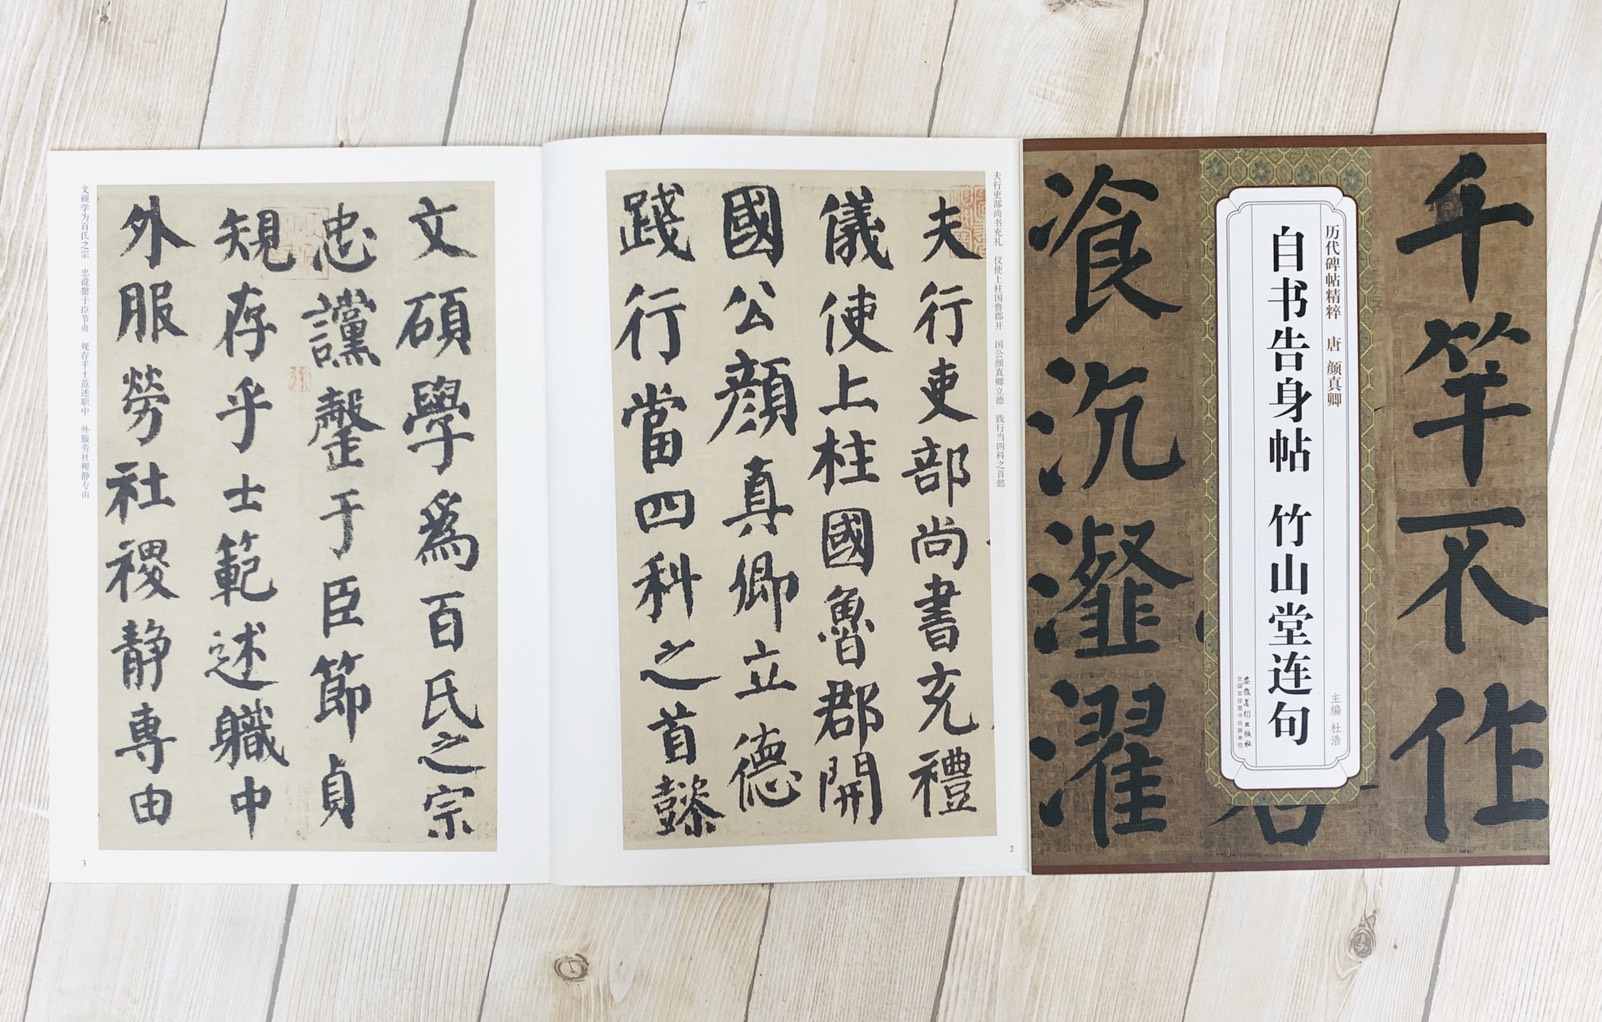 千竿不作
飡沉瀣濯
历代碑帖精粹 唐 颜真卿
自书告身帖 竹山堂连句
主编 杜浩
安徽美术出版社
全国百佳图书出版单位
夫行吏部尚书充礼 仪使上柱国鲁郡开 国公颜真卿立德 践行当四科之首懿
夫行吏部尚書充禮
儀使上柱國魯郡開
國公顏真卿立德
踐行當四科之首懿
2
文碩學為百氏之宗
忠讜罄于臣節貞
規存乎士範述職中
外服勞社稷静專由
文硕学为百氏之宗 忠谠罄于臣节贞 规存乎士范述职中 外服劳社稷静专由
3